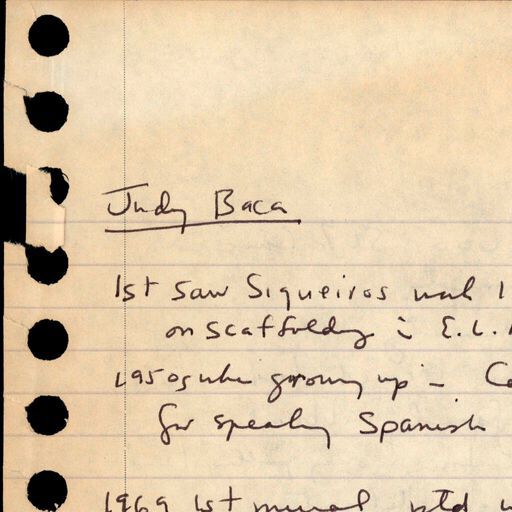 Judy Baca
1st saw Siqueiros work
on scaffolding in E.L.
1950s when growing up - 
for speaking Spanish
1969 1st mural ptd